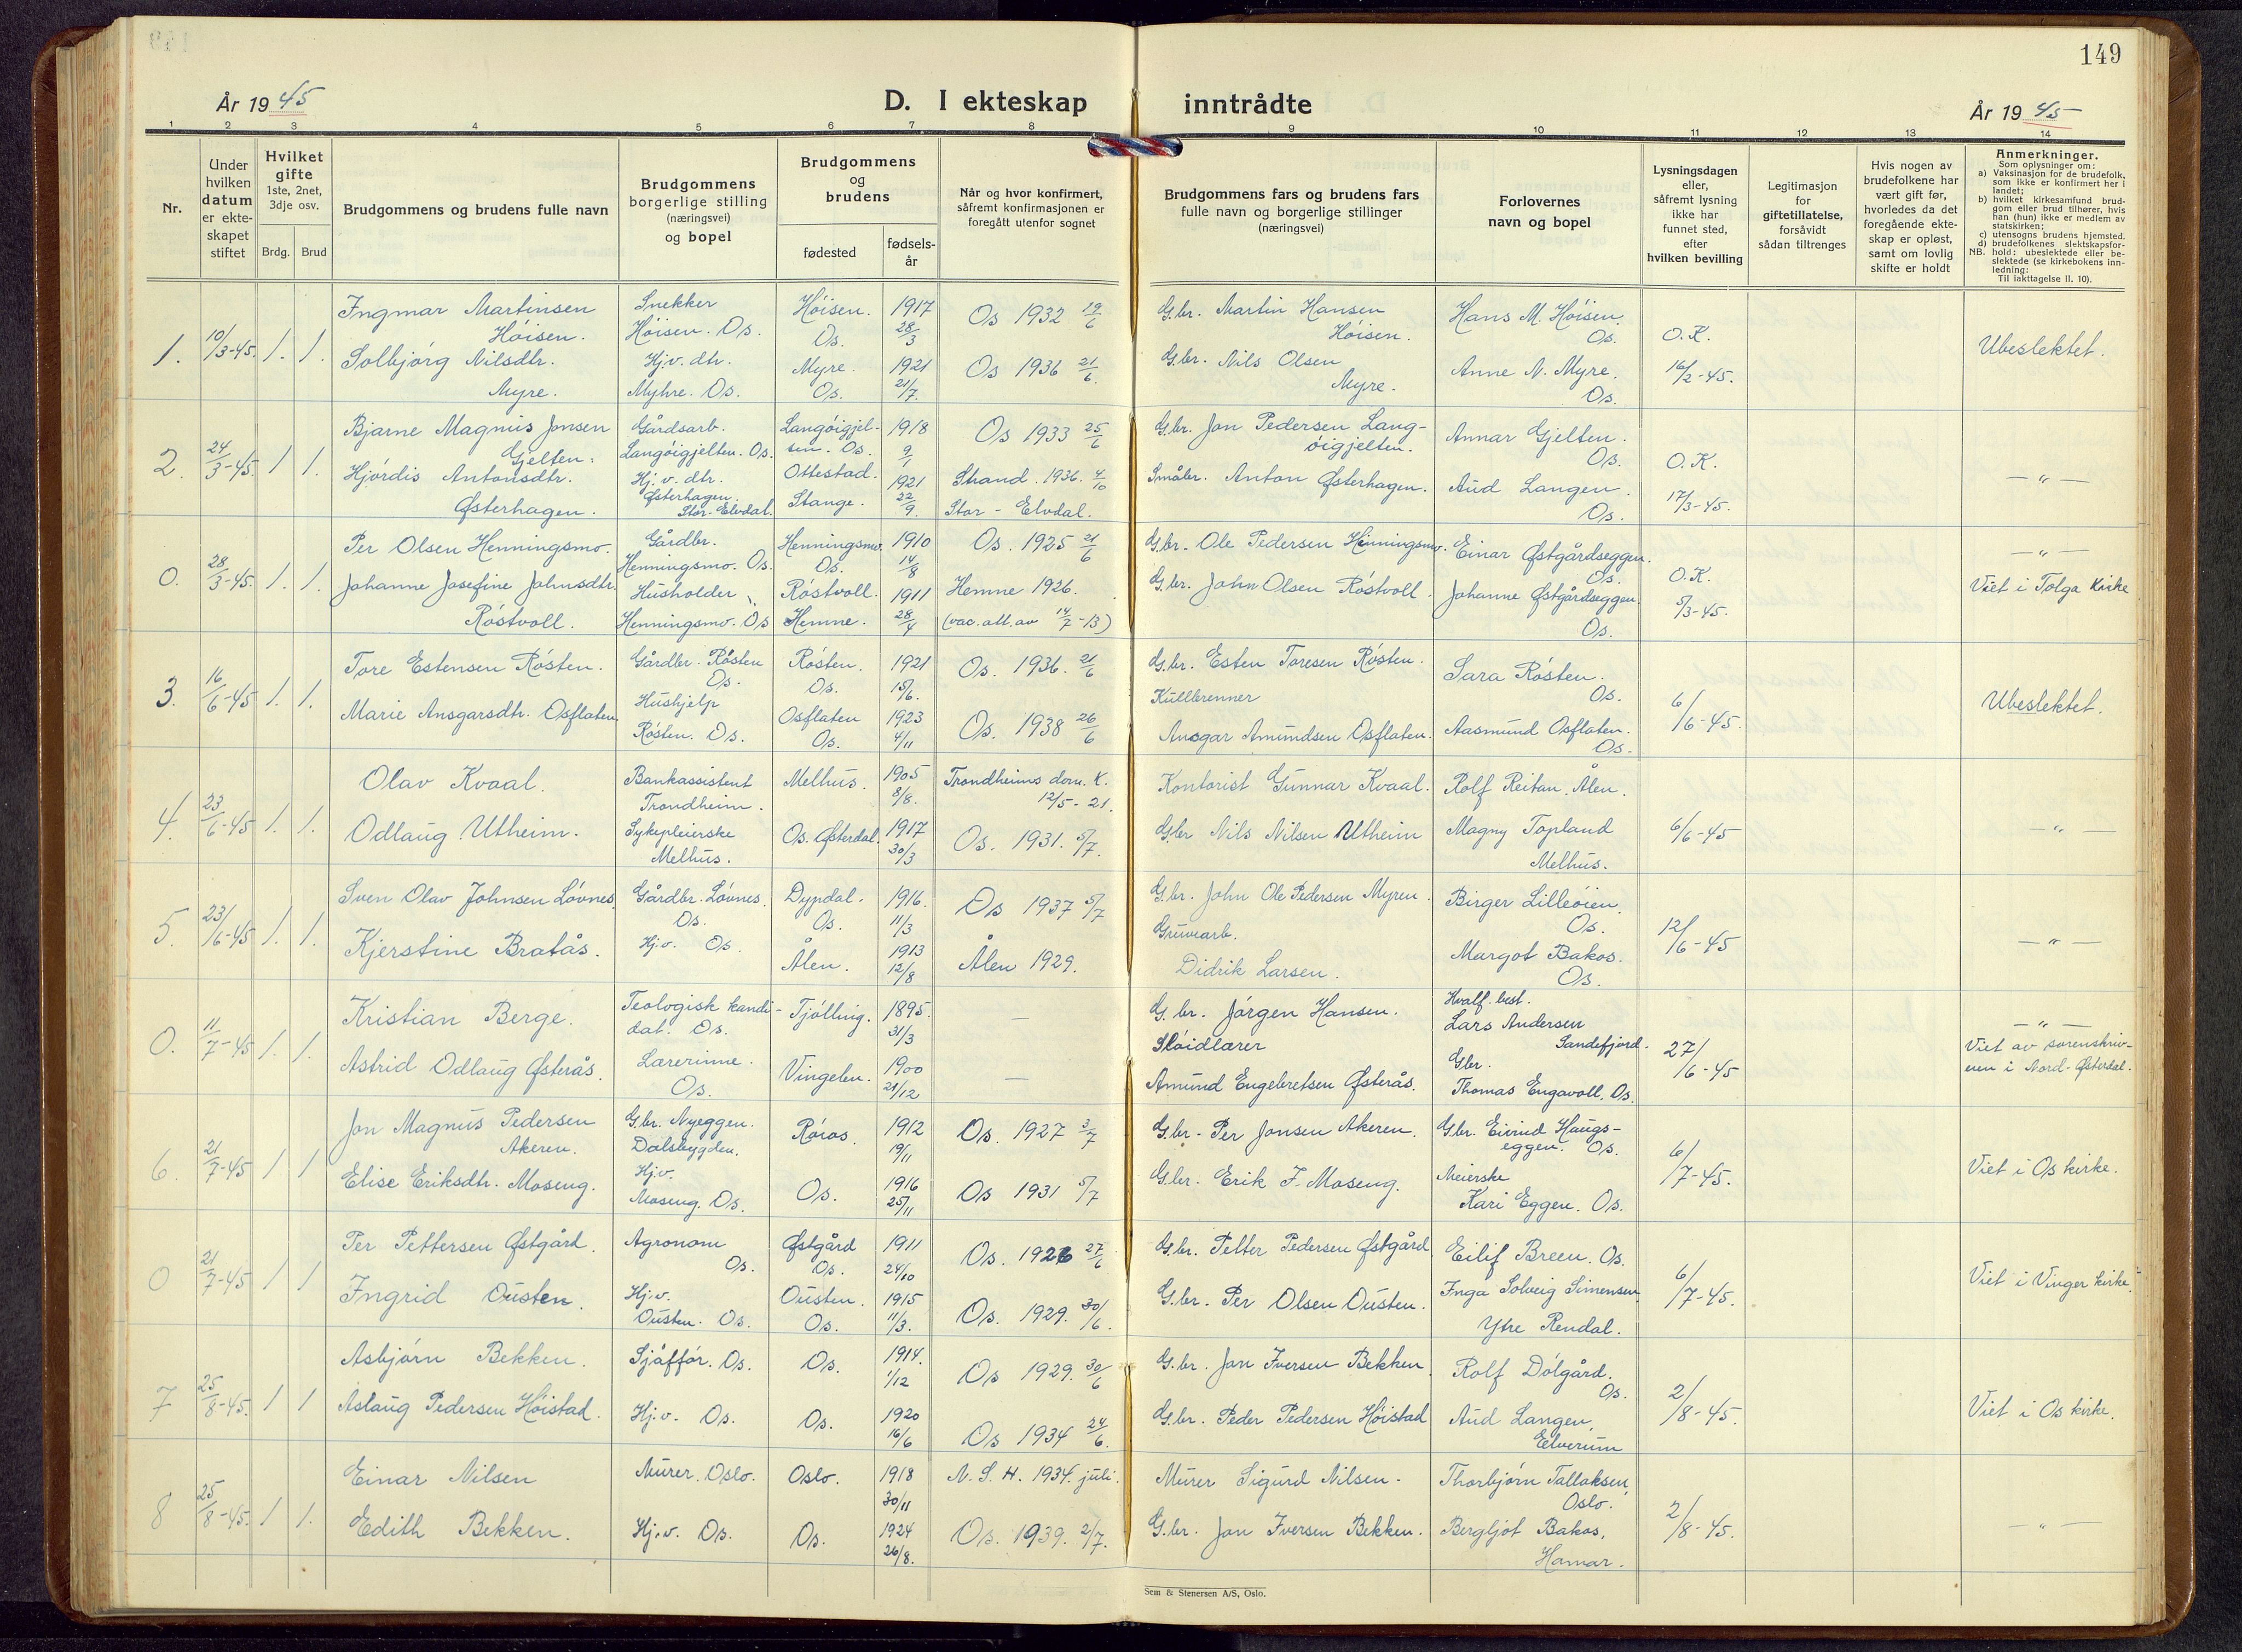 149
År 1945
D. I ekteskap inntrådte
År 1945
1 2 3 4 5 6 7 8 9 10 11 12 13 14
Nr.
Under hvilken datum er ekteskapet stiftet
Hvilket gifte 1ste, 2net, 3dje osv.
Brdg. Brud
Brudgommens og brudens fulle navn
Brudgommens borgerlige stilling (næringsvei) og bopel
Brudgommens og brudens
fødested
fødsels-år
Når og hvor konfirmert, såfremt konfirmasjonen er foregått utenfor sognet
Brudgommens fars og brudens fars fulle navn og borgerlige stillinger (næringsvei)
Forlovernes navn og bopel
Lysningsdagen eller, såfremt lysning ikke har funnet sted, efter hvilken bevilling
Legitimasjon for giftetillatelse, forsåvidt sådan tiltrenges
Hvis nogen av brudefolkene har vært gift før, hvorledes da det foregående ekteskap er opløst, samt om lovlig skifte er holdt
Anmerkninger.
Som oplysninger om:
a) Vaksinasjon for de brudefolk, som ikke er konfirmert her i landet;
b) hvilket kirkesamfund brudgom eller brud tilhører, hvis han (hun) ikke er medlem av statskirken;
c) utensogns brudens hjemsted.
d) brudefolkenes slektskapsforhold: ubeslektede eller beslektede (se kirkebokens innledning:
NB. Til iakttagelse II. 10).
1. 10/3-45. 1. 1.
Ingmar Martinsen Høisen. Snekker Høisen. Os. Høisen. Os. 1917 28/3 Os 1932 19/6 G.br. Martin Hansen Høisen. Hans M. Høisen. Os. O.K.
Solbjørg Nilsdtr. Myre. Hj.v. dtr. Myhre. Os. Myre. Os. 1921 21/7 Os 1936 21/6. G.br. Nils Olsen Myre. Anne N. Myre. Os. 16/2-45. Ubeslektet.
2. 24/3-45. 1 1.
Bjarne Magnus Jonsen Gjelten. Gårdsarb. Langøigjelten. Os. Langøigjelten. Os. 1918 9/1 Os 1933 25/6 G.br. Jon Pedersen Langøigjelten. Annar Gjelten. Os. O.K.
Hjørdis Antonsdtr. Østerhagen. Hj.v. dtr. Østerhagen. Stor-Elvdal. Ottestad. Stange. 1921 22/9. Strand. 1936. 4/10 Stor-Elvdal. Småbr. Anton Østerhagen. Aud Langen. Os. 17/3-45. — " —
0. 28/3-45. 1. 1.
Per Olsen Henningsmo. Gårdbr. Henningsmo. Os. Henningsmo. Os. 1910 14/8 Os. 1925 21/6 G.br. Ole Pedersen Henningsmo. Einar Østgårdseggen. Os. O.K. — " —
Johanne Josefine Johnsdtr. Røstvoll. Husholder Henningsmo. Os Røstvoll. Hemne. 1911 28/4 Hemne 1926. (vac. att. av 14/7-13) G.br. John Olsen Røstvoll. Johanne Østgårdseggen. Os. 5/3-45. Viet i Tolga kirke
3. 16/6-45 1. 1.
Tore Estensen Røsten. Gårdbr. Røsten Os. Røsten. Os. 1921 15/6. Os. 1936. 21/6 G.br. Esten Toresen Røsten. Sara Røsten. Os.
Marie Ansgarsdtr. Osflaten Hushjelp Røsten. Os. Osflaten Os. 1923 4/11 Os. 1938 26/6 Kullbrenner Ansgar Amundsen Osflaten. Aasmund Osflaten. Os. 6/6-45. Ubeslektet.
4. 23/6-45 1. 1.
Olav Kvaal. Bankassistent Trondheim. Melhus. 1905 8/8. Trondheims dom. k. 12/5-21. Kontorist Gunnar Kvaal. Rolf Reitan. Ålen.
Odlaug Utheim. Sykepleierske Melhus. Os. Østerdal. 1917 30/3 Os. 1931. 5/7. G.br Nils Nilsen Utheim Magny Topland Melhus. 6/6-45 — " —
5. 23/6-45 1. 1.
Sven Olav Johnsen Løvnes. Gårdbr. Løvnes. Os. Dypdal. Os. 1916. 11/3 Os 1937 5/7 G.br. John Ole Pedersen Myren. Birger Lilleøien. Os.
Kjerstine Bratås. Hj.v. Os. Ålen. 1913 12/8 Ålen 1929. Gruvearb. Didrik Larsen. Margot Bakos. Os. 12/6-45 — " —
0. 11/7-45 1. 1.
Kristian Berge. Teologisk kandidat. Os. Tjølling. 1895. 31/3 — G.br. Jørgen Hansen. Hvalf. best. Lars Andersen Sandefjord. — " —
Astrid Odlaug Østerås. Lærerinne. Os. Vingelen. 1900 21/12 — Sløidlærer Amund Engebretsen Østerås. Gbr. Thomas Engavoll. Os. 27/6-45 Viet av sorenskriveren i Nord-Østerdal.
6. 21/7-45 1 1
Jon Magnus Pedersen Akeren. G.br. Nyeggen. Dalsbygden. Røros. 1912 19/11 Os. 1927 3/7 G.br. Per Jonsen Akeren. G.br. Eivind Haugseggen. Os.
Elise Eriksdtr. Moseng. Hj.v. Moseng. Os. Os. 1916 25/11 Os 1931 5/7 G.br. Erik J. Moseng. Meierske Kari Eggen. Os. 6/7-45. Viet i Os kirke.
0 21/7-45 1 1
Per Pettersen Østgård. Agronom Os. Østgård Os. 1911 24/10 Os. 1926 27/6 G.br. Petter Pedersen Østgård Eilif Breen. Os.
Ingrid Ousten. Hj.v. Ousten. Os. Ousten. Os. 1915 11/3. Os. 1929. 30/6. G.br. Per Olsen Ousten. Inga Solveig Simensen Ytre Rendal. 6/7-45. Viet i Vinger kirke.
7 25/8-45. 1 1
Asbjørn Bekken. Sjåffør. Os. Os. 1914. 1/12 Os 1929. 30/6 G.br. Jon Iversen Bekken. Rolf Dølgård. Os.
Aslaug Pedersen Høistad. Hj.v. Os. Os. 1920 16/6 Os 1934 24/6. G.br. Peder Pedersen Høistad Aud Langen, Elverum 2/8-45. Viet i Os kirke.
8 25/8-45. 1 1.
Einar Nilsen Murer. Oslo. Oslo. 1918 30/11 N.S.H. 1934. juli. Murer Sigurd Nilsen. Thorbjørn Tallaksen, Oslo.
Edith Bekken. Hj.v. Os. Os. 1924 26/8. Os. 1939. 2/7. G.br. Jon Iversen Bekken. Bergljot Bakos, Hamar. 2/8-45. — " —
Sem & Stenersen A/S, Oslo.